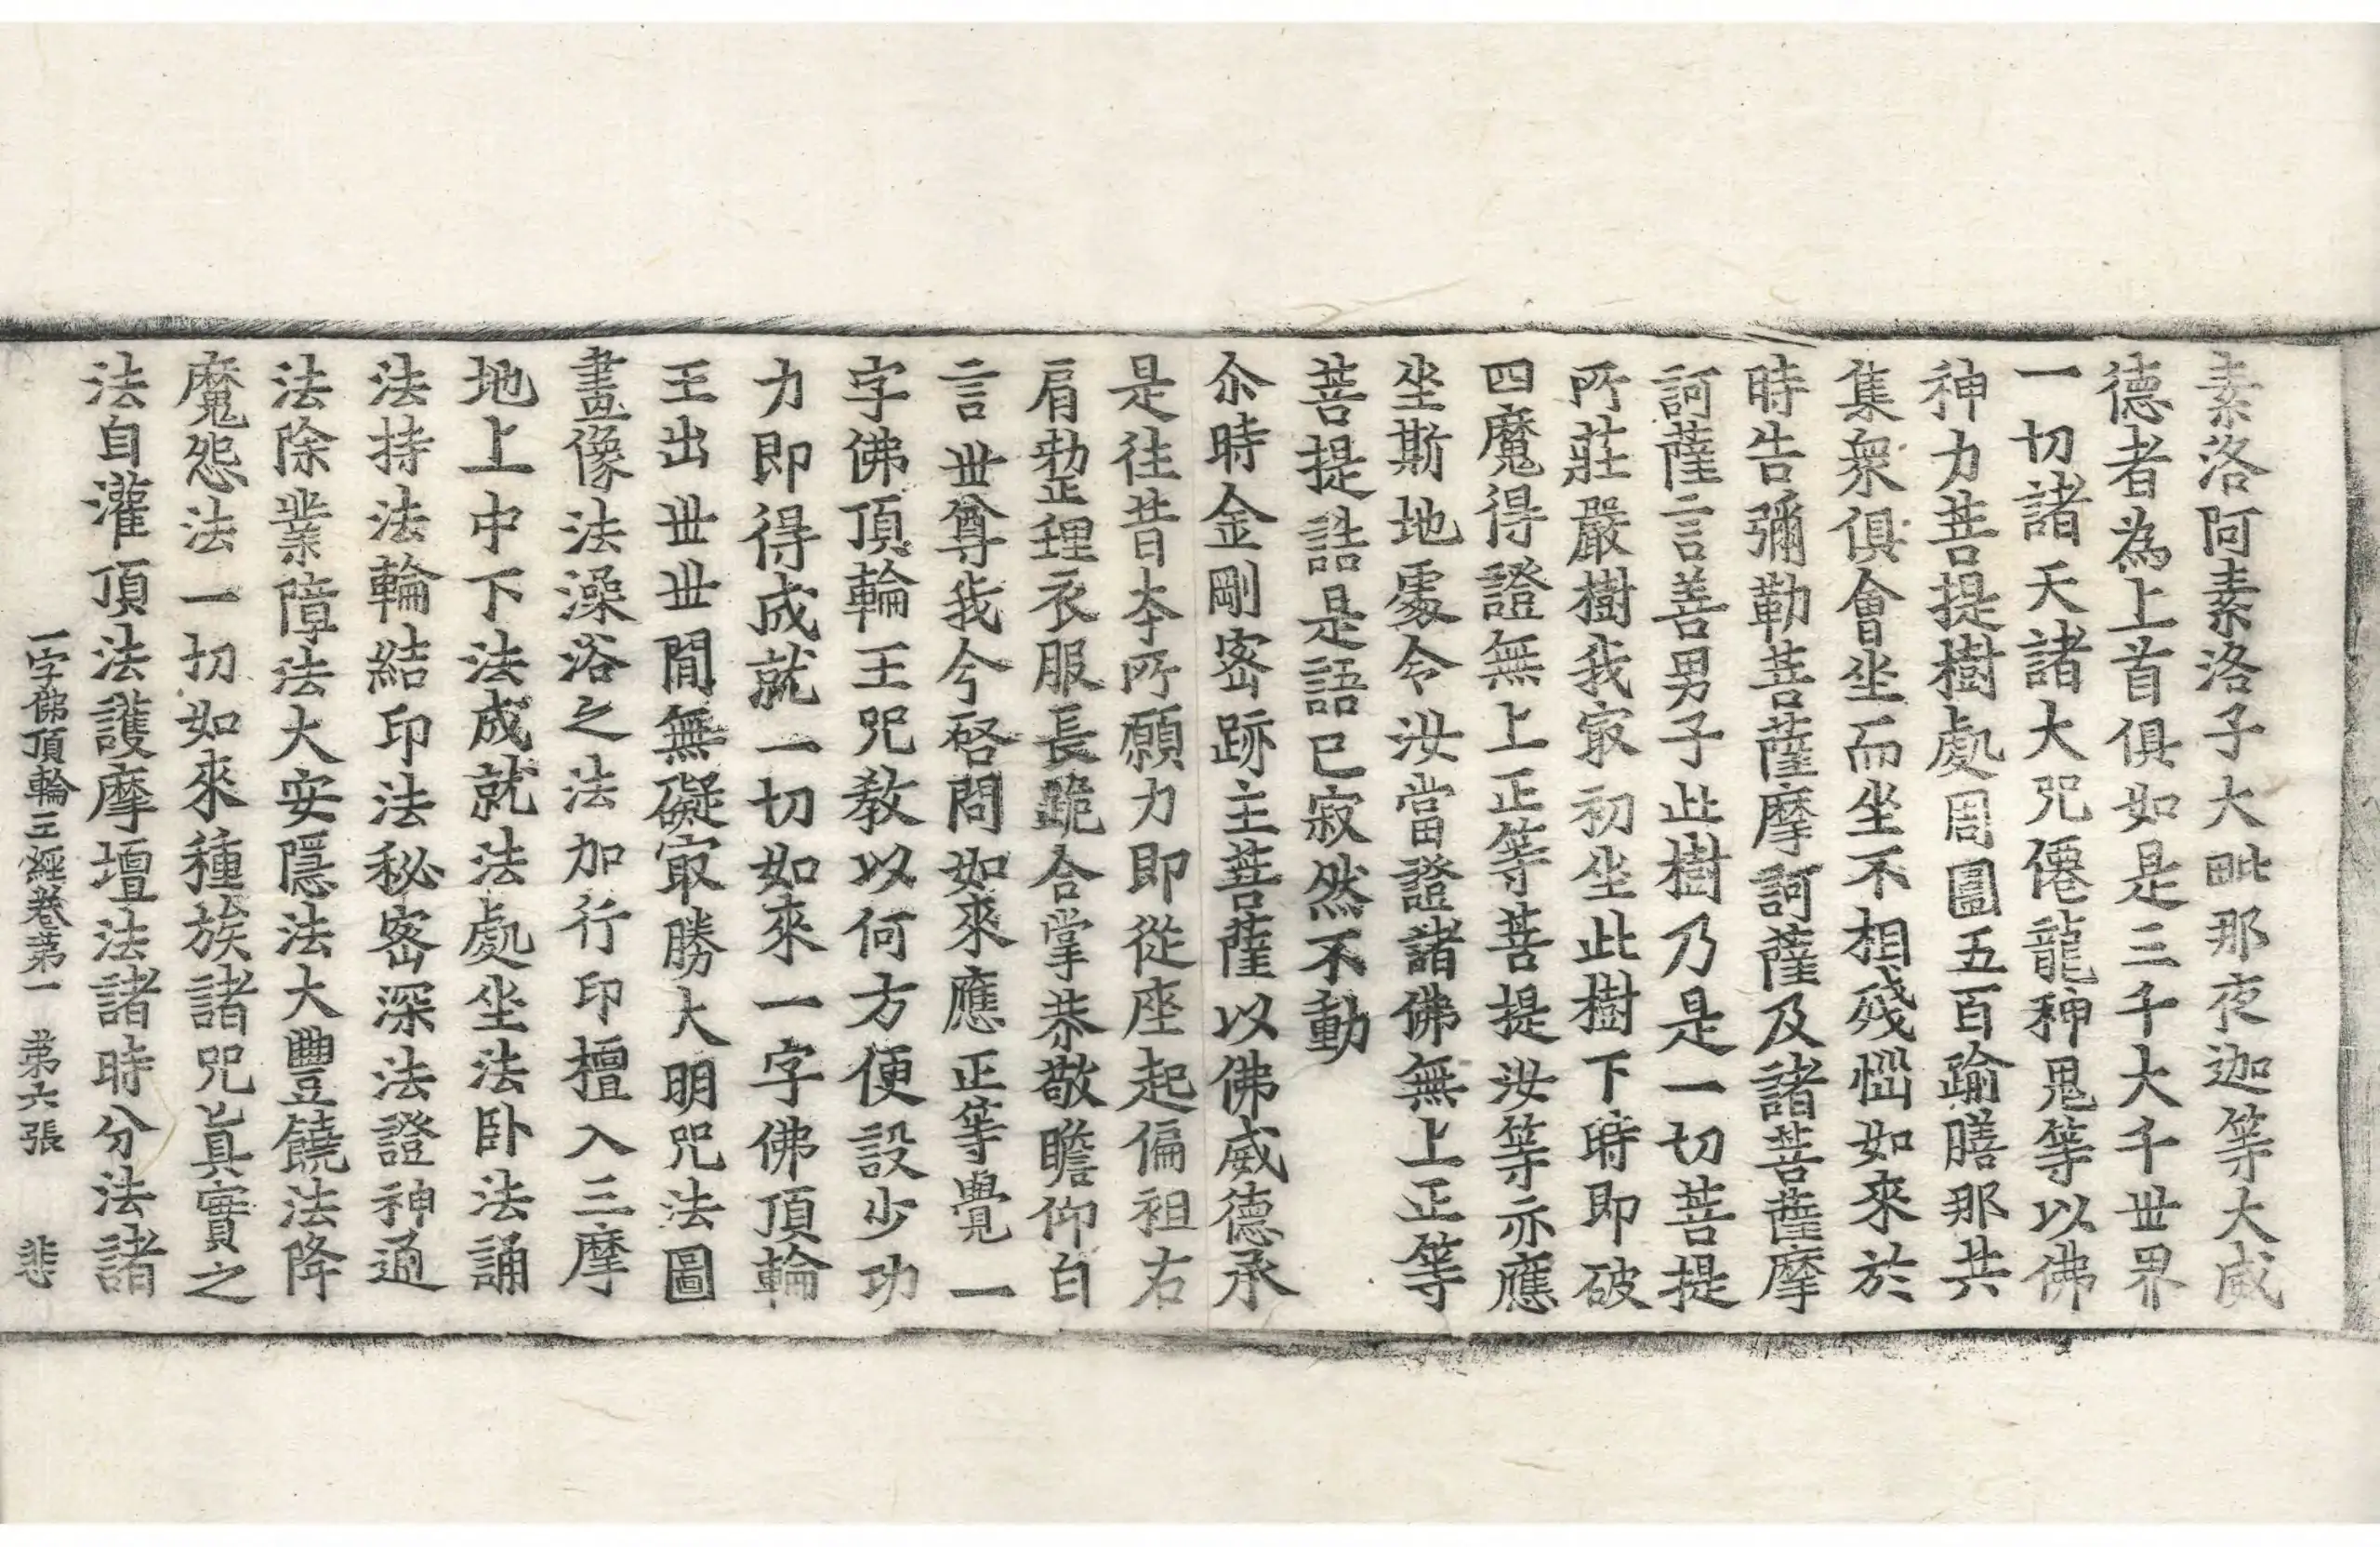 素洛阿素洛子大毗那夜迦等大威
德者為上首俱如是三千大千世界
一切諸天諸大咒僊龍神鬼等以佛
神力菩提樹處周圓五百踰膳那共
集衆俱會坐而坐不相殘惱如來於
時告彌勒菩薩摩訶薩及諸菩薩摩
訶薩言善男子此樹乃是一切菩提
所莊嚴樹我㝡初坐此樹下時即破
四魔得證無上正等菩提汝等亦應
坐斯地處令汝當證諸佛無上正等
菩提誥是語已寂然不動
尒時金剛密跡主菩薩以佛威德承
是往昔本所願力即從座起偏袒右
肩勑整理衣服長跪合掌恭敬瞻仰白
言世尊我今啓問如來應正等覺一
字佛頂輪王咒教以何方便設少功
力即得成就一切如來一字佛頂輪
王出世世間無礙㝡勝大明咒法圖
畫像法澡浴之法加行印檀入三摩
地上中下法成就法處坐法卧法誦
法持法輪結印法秘密深法證神通
法除業障法大安隱法大豐饒法降
魔怨法一切如來種族諸咒真實之
法自灌頂法護摩壇法諸時分法諸
一字佛頂輪王經卷第一 第六張 悲